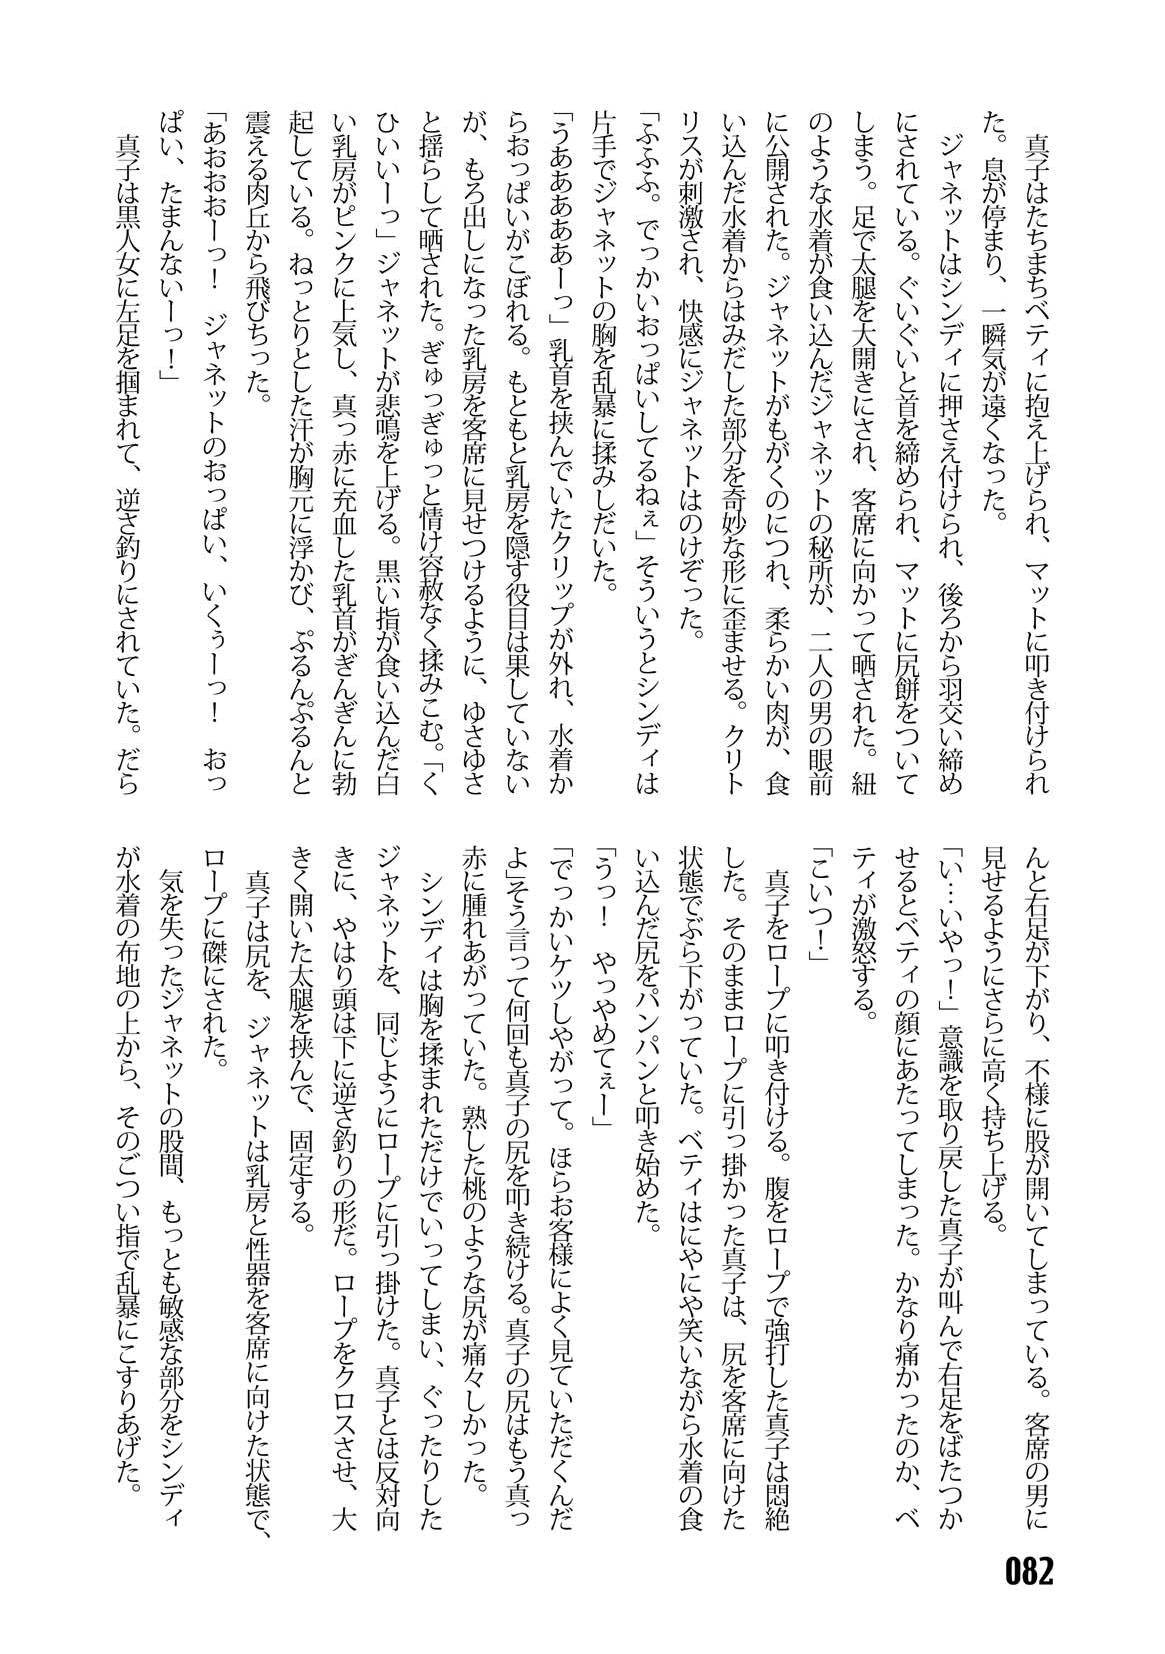 真子はたちまちベティに抱え上げられ、マットに叩き付けられ
た。息が停まり、一瞬気が遠くなった。
ジャネットはシンディに押さえ付けられ、後ろから羽交い締め
にされている。ぐいぐいと首を締められ、マットに尻餅をついて
しまう。足で太腿を大開きにされ、客席に向かって晒された。紐
のような水着が食い込んだジャネットの秘所が、二人の男の眼前
に公開された。ジャネットがもがくのにつれ、柔らかい肉が、食
い込んだ水着からはみだした部分を奇妙な形に歪ませる。クリト
リスが刺激され、快感にジャネットはのけぞった。
「ふふふ。でっかいおっぱいしてるねぇ」そういうとシンディは
片手でジャネットの胸を乱暴に揉みしだいた。
「うああああああーっ」乳首を挟んでいたクリップが外れ、水着か
らおっぱいがこぼれる。もともと乳房を隠す役目は果していない
が、もろ出しになった乳房を客席に見せつけるように、ゆさゆさ
と揺らして晒された。ぎゅっぎゅっと情け容赦なく揉みこむ。「く
ひいいーっ」ジャネットが悲鳴を上げる。黒い指が食い込んだ白
い乳房がピンクに上気し、真っ赤に充血した乳首がぎんぎんに勃
起している。ねっとりとした汗が胸元に浮かび、ぷるんぷるんと
震える肉丘から飛びちった。
「あおおおーっ！　ジャネットのおっぱい、いくぅーっ！　おっ
ぱい、たまんないーっ！」
真子は黒人女に左足を掴まれて、逆さ釣りにされていた。だら
んと右足が下がり、不様に股が開いてしまっている。客席の男に
見せるようにさらに高く持ち上げる。
「い…いやっ！」意識を取り戻した真子が叫んで右足をばたつか
せるとベティの顔にあたってしまった。かなり痛かったのか、ベ
ティが激怒する。
「こいつ！」
真子をロープに叩き付ける。腹をロープで強打した真子は悶絶
した。そのままロープに引っ掛かった真子は、尻を客席に向けた
状態でぶら下がっていた。ベティはにやにや笑いながら水着の食
い込んだ尻をパンパンと叩き始めた。
「うっ！　やっやめてぇー」
「でっかいケツしやがって。ほらお客様によく見ていただくんだ
よ」そう言って何回も真子の尻を叩き続ける。真子の尻はもう真っ
赤に腫れあがっていた。熟した桃のような尻が痛々しかった。
シンディは胸を揉まれただけでいってしまい、ぐったりした
ジャネットを、同じようにロープに引っ掛けた。真子とは反対向
きに、やはり頭は下に逆さ釣りの形だ。ロープをクロスさせ、大
きく開いた太腿を挟んで、固定する。
真子は尻を、ジャネットは乳房と性器を客席に向けた状態で、
ロープに磔にされた。
気を失ったジャネットの股間、もっとも敏感な部分をシンディ
が水着の布地の上から、そのごつい指で乱暴にこすりあげた。
082